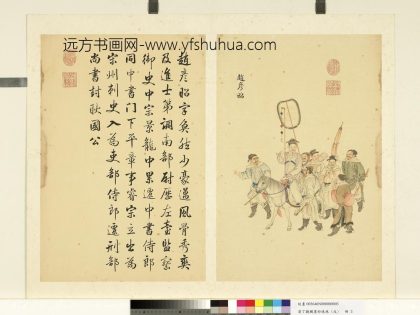 远方书画网-www.yfshuhua.com
趙彥昭
趙彥昭字奐然少豪邁風骨秀爽
及進士第調南部尉歷左臺監察
御史中宗景龍中累遷中書侍郎
同中書门下平章事睿宗立出為
宗州刺史入為吏部侍郎遷刑部
尚書封耿國公